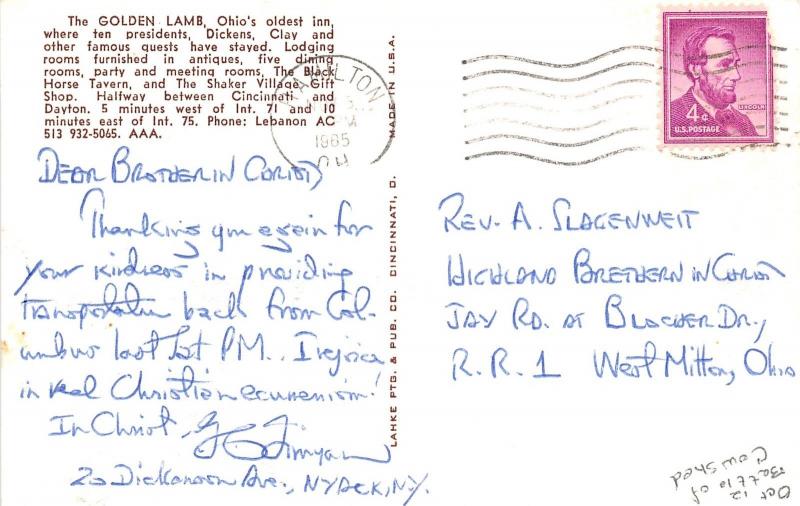 The GOLDEN LAMB, Ohio's oldest inn,
where ten presidents, Dickens, Clay and
other famous guests have stayed. Lodging
rooms furnished in antiques, five dining
rooms, party and meeting rooms, The Black
Horse Tavern, and The Shaker Village Gift
Shop. Halfway between Cincinnati and
Dayton. 5 minutes west of Int. 71 and 10
minutes east of Int. 75. Phone: Lebanon AC
513 932-5065. AAA.
HAMILTON
PM
1965
LAHKE PTG. & PUB. CO. CINCINNATI, O. MADE IN U.S.A.
LINCOLN
4¢
U.S. POSTAGE
DEAR BROTHER IN CHRIST,
Thanking you again for
your kindness in providing
transportation back from Col-
umbus last Sat PM. I rejoice
in real Christian ecumenism!
In Christ,
20 Dickinson Ave., NYACK, NY.
REV. A. SLAGENWEIT
HIGHLAND BRETHERN IN CHRIST
JAY RD. AT BLOCHER DR.,
R.R. 1 West Milton, Ohio
Oct 12
Battle of
Cowshed